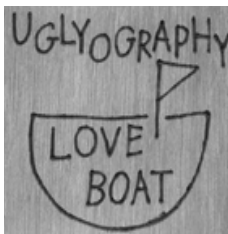 UGLYOGRAPHY
LOVE
BOAT